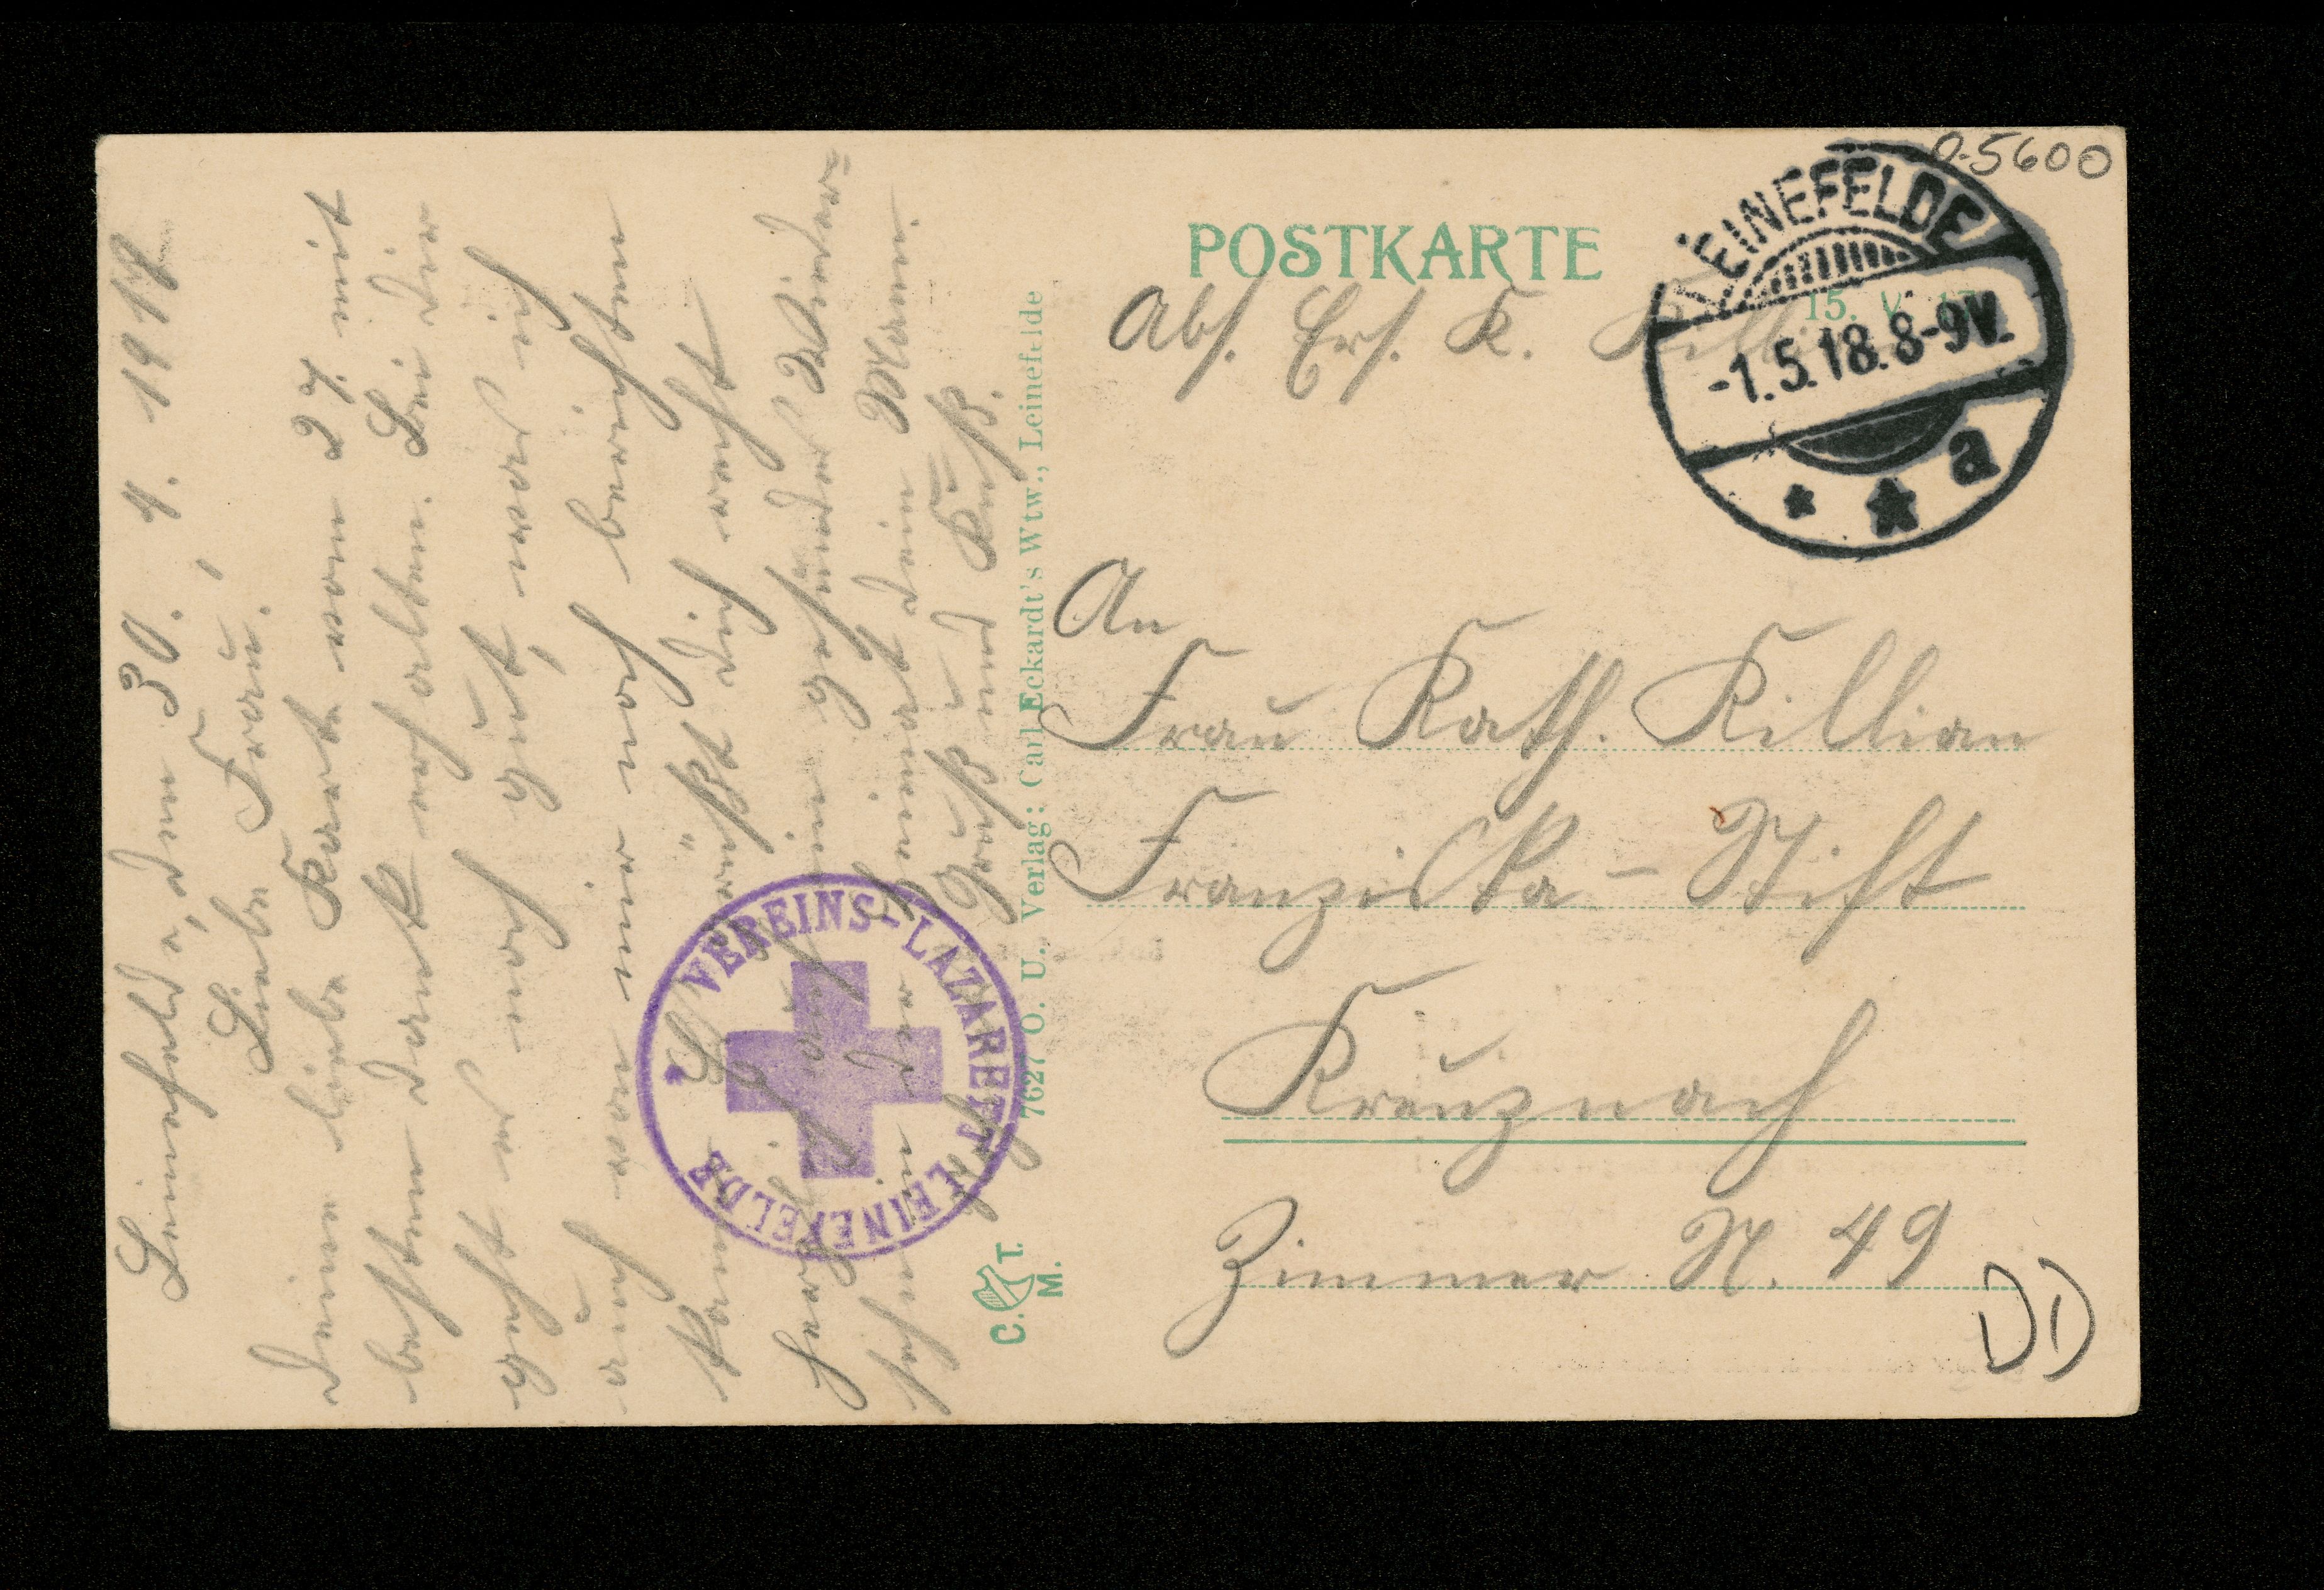 Leinefelde, den 30. 4. 1918
Liebe Frau.
Deine liebe Karte vom 27. mit
besten Dank erhalten. Bei Dir
geht es noch gut, was ich
auch von mir noch berichten
kann. Es grüßt Dich recht
herzl. auf ein gesundes Wieder=
sehen in der Heimat dein Mann.
Gruß und Kuß.
POSTKARTE
Abs. Ers. K. Killian
15. V. 17
LEINEFELDE
-1.5.18.8-9V.
a
0-5600
An
Frau Kath. Killian
Franziska-Stift
Kreuznach
Zimmer N. 49
VEREINS-LAZARETT LEINEFELDE
7627 O. U. Verlag: Carl Eckardt's Wtw., Leinefelde
C. T.
M.